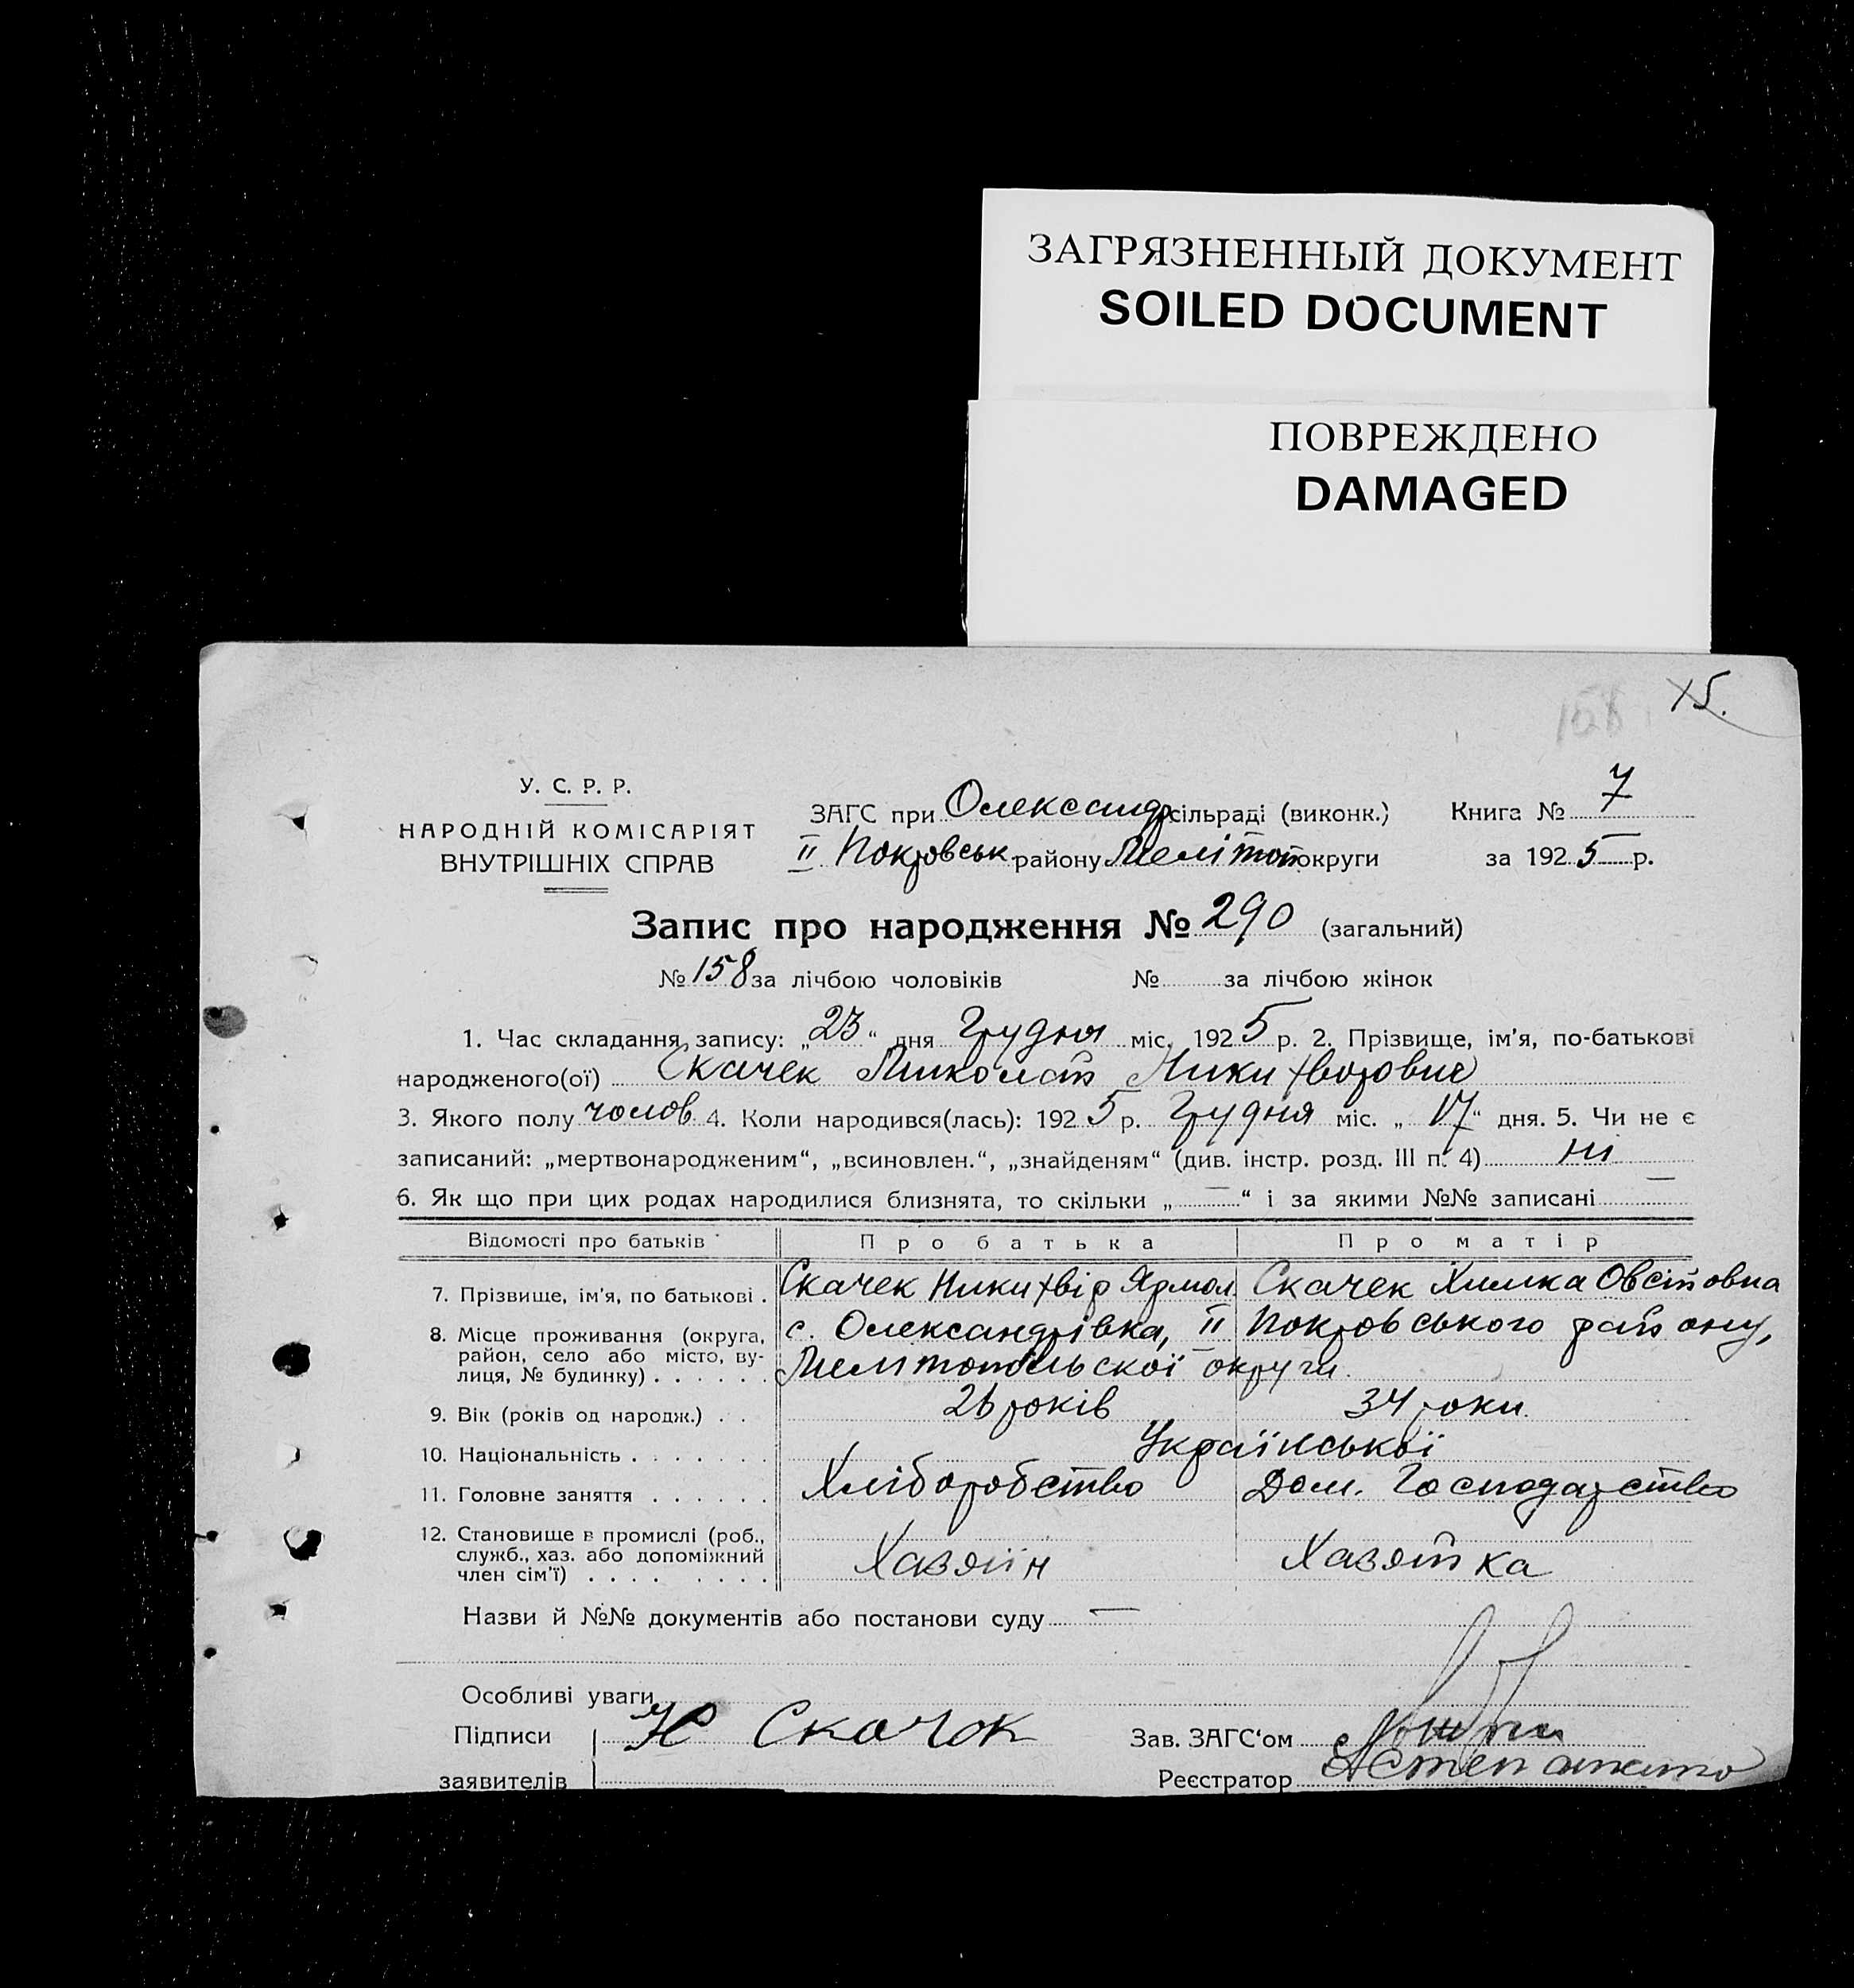 ЗАГРЯЗНЕННЫЙ ДОКУМЕНТ
SOILED DOCUMENT
ПОВРЕЖДЕНО
DAMAGED
158 15.
У. С. Р. Р.
НАРОДНІЙ КОМІСАРІЯТ
ВНУТРІШНІХ СПРАВ
ЗАГС при Олександр сільраді (виконк.) Книга № 7
II Покровськ. району Мелітоп. округи за 1925 р.
Запис про народження № 290 (загальний)
№ 158 за лічбою чоловіків № за лічбою жінок
1. Час складання запису: „23“ дня Грудня міс. 1925 р. 2. Прізвище, ім'я, по-батькові
народженого(ої) Скачек Миколай Никихворович
3. Якого полу чолов. 4. Коли народився(лась): 1925 р. Грудня міс. „17“ дня. 5. Чи не є
записаний: „мертвонародженим“, „всиновлен.“, „знайденям“ (див. інстр. розд. III п. 4) ні
6. Як що при цих родах народилися близнята, то скільки „—“ і за якими №№ записані —
Відомості про батьків Про батька Про матір
7. Прізвище, ім'я, по батькові . Скачек Никихвір Ярмол. Скачек Химка Овсіовна
8. Місце проживання (округа, район, село або місто, вулиця, № будинку) . . . . . . с. Олександрівка, II Покровського району,
Мелітопільської округи.
9. Вік (років од народж.) . . 26 років 34 роки.
10. Національність . . . . . . . Української
11. Головне заняття . . . . . . Хліборобство Дом. Господарство
12. Становище в промислі (роб., служб., хаз. або допоміжний член сім'ї) . . . . . . . . Хазяїн Хазяйка
Назви й №№ документів або постанови суду —
Особливі уваги
Підписи заявителів Н Скачок
Зав. ЗАГС'ом
Реєстратор АСтепаненко